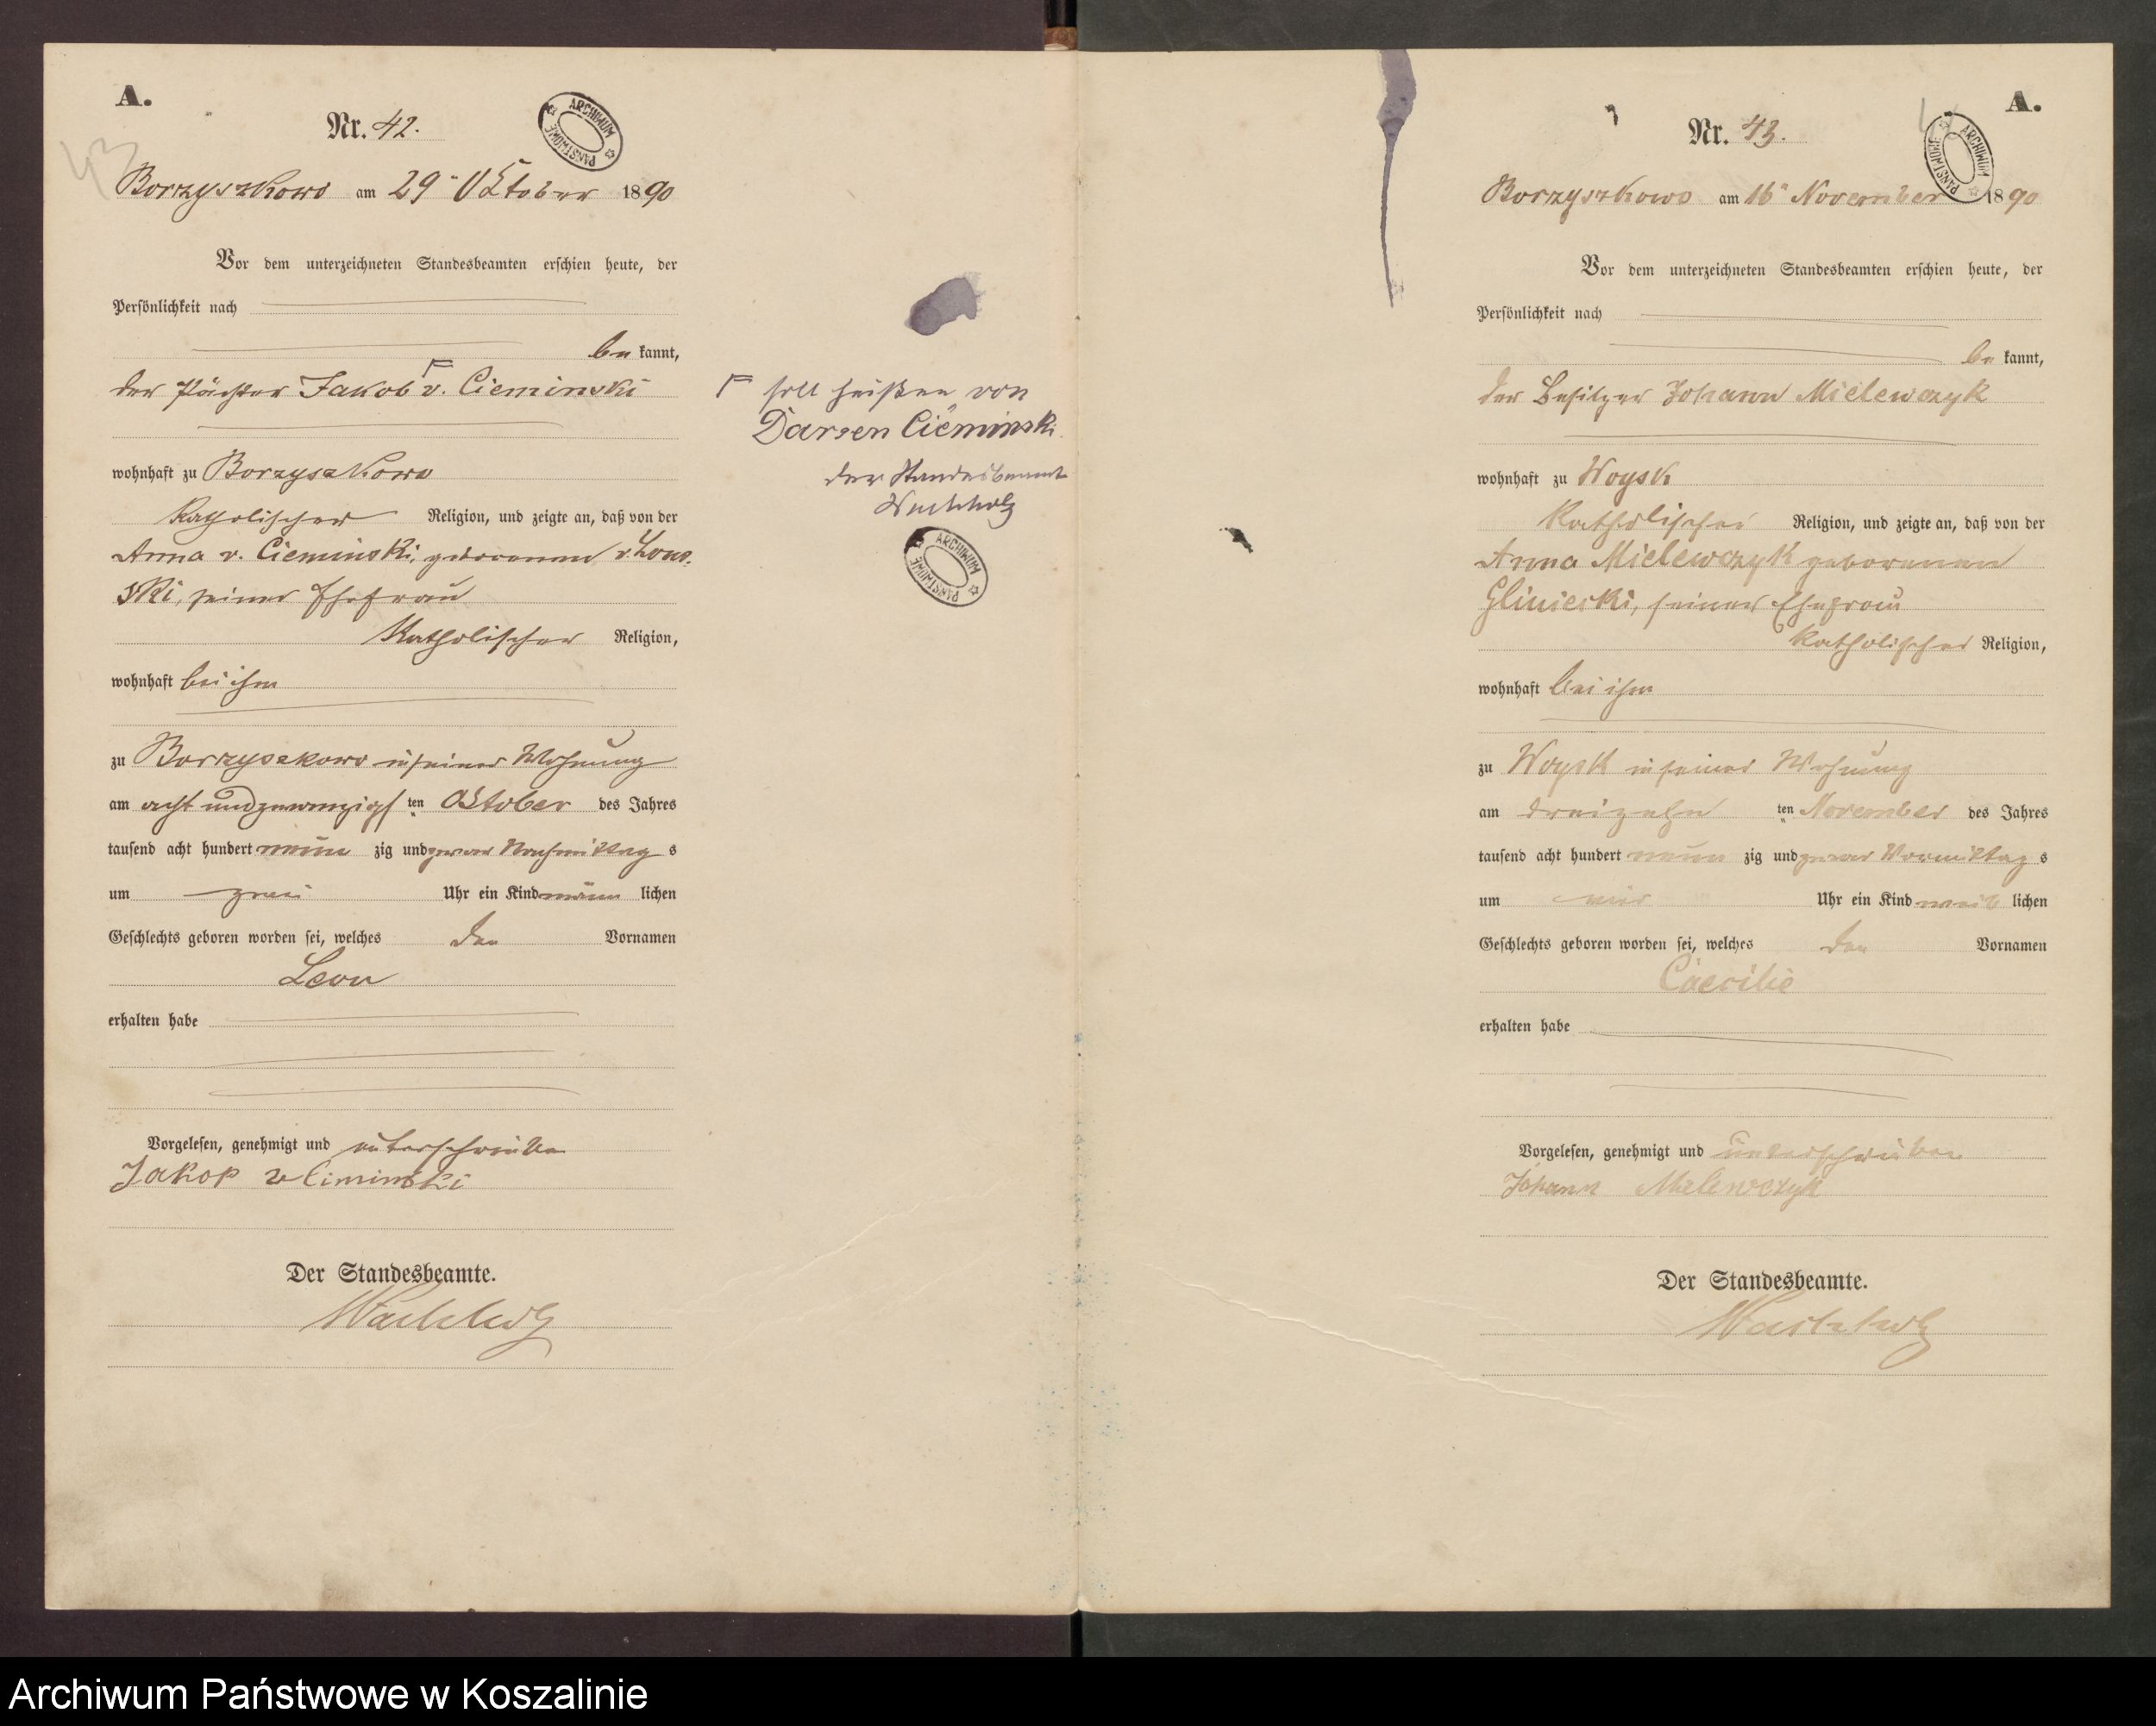 A.
Nr. 42.
43
ARCHIWUM PAŃSTWOWE
Borzyszkowo am 29ⁿ Oktober 1890
Vor dem unterzeichneten Standesbeamten erschien heute, der
Persönlichkeit nach
be kannt,
der Pächter Jakob ⌈ v. Cieminski
wohnhaft zu Borzyszkowo
katholischer Religion, und zeigte an, daß von der
Anna v. Cieminski, geborenen v.
ski, seiner Ehefrau
katholischer Religion,
wohnhaft bei ihm
zu Borzyszkowo in seiner Wohnung
am acht und zwanzigs ten Oktober des Jahres
tausend acht hundert neun zig und zwar Nachmittag s
um zwei Uhr ein Kind männ lichen
Geschlechts geboren worden sei, welches den Vornamen
Leon
erhalten habe
Vorgelesen, genehmigt und unterschrieben
Jakop v Ciminski
Der Standesbeamte.
Wachholz
⌈ soll heißen von
Darsen Cieminski.
der Standesbeamte
Wachholz
ARCHIWUM PAŃSTWOWE
A.
Nr. 43.
ARCHIWUM PAŃSTWOWE
Borzyszkowo am 16ⁿ November 1890
Vor dem unterzeichneten Standesbeamten erschien heute, der
Persönlichkeit nach
be kannt,
der Besitzer Johann Mielewczyk
wohnhaft zu Woysk
katholischer Religion, und zeigte an, daß von der
Anna Mielewczyk geborenen
Glinieski, seiner Ehefrau
katholischer Religion,
wohnhaft bei ihm
zu Woysk in seiner Wohnung
am dreizehn ten November des Jahres
tausend acht hundert neun zig und zwar Vormittag s
um vier Uhr ein Kind weib lichen
Geschlechts geboren worden sei, welches den Vornamen
Caecilie
erhalten habe
Vorgelesen, genehmigt und unterschrieben
Johann Mielewczyk
Der Standesbeamte.
Wachholz
Archiwum Państwowe w Koszalinie